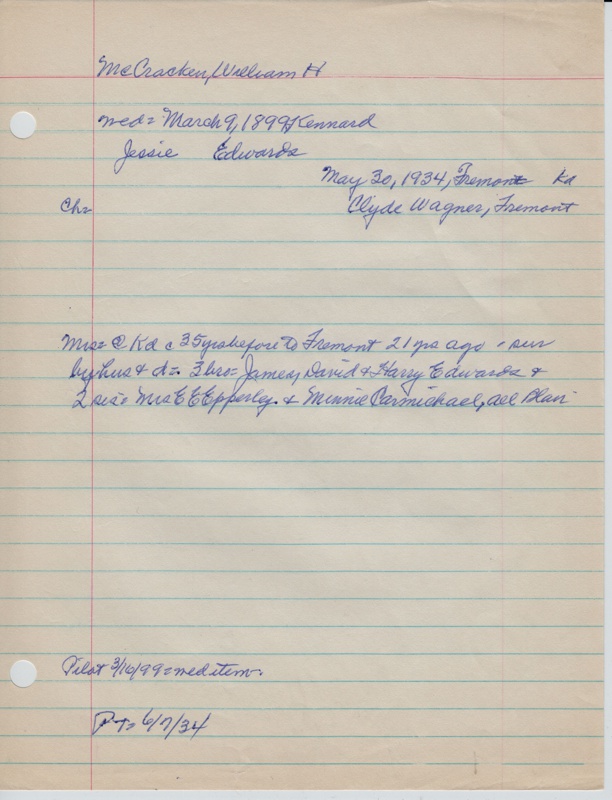 McCracken, William H
med= March 9, 1899, Kennard
Jessie Edwards
May 30, 1934, Fremont Kd
Ch= Clyde Wagner, Fremont
Mrs= @ Kd c 35 yrs before to Fremont 21 yrs ago - sur
by hus & d=. 3 bro= James, David & Harry Edwards &
2 sis= Mrs E E Epperley. & Minnie Carmichael, all Blair
Pilot 3/16/99= med item.
PT= 6/7/34